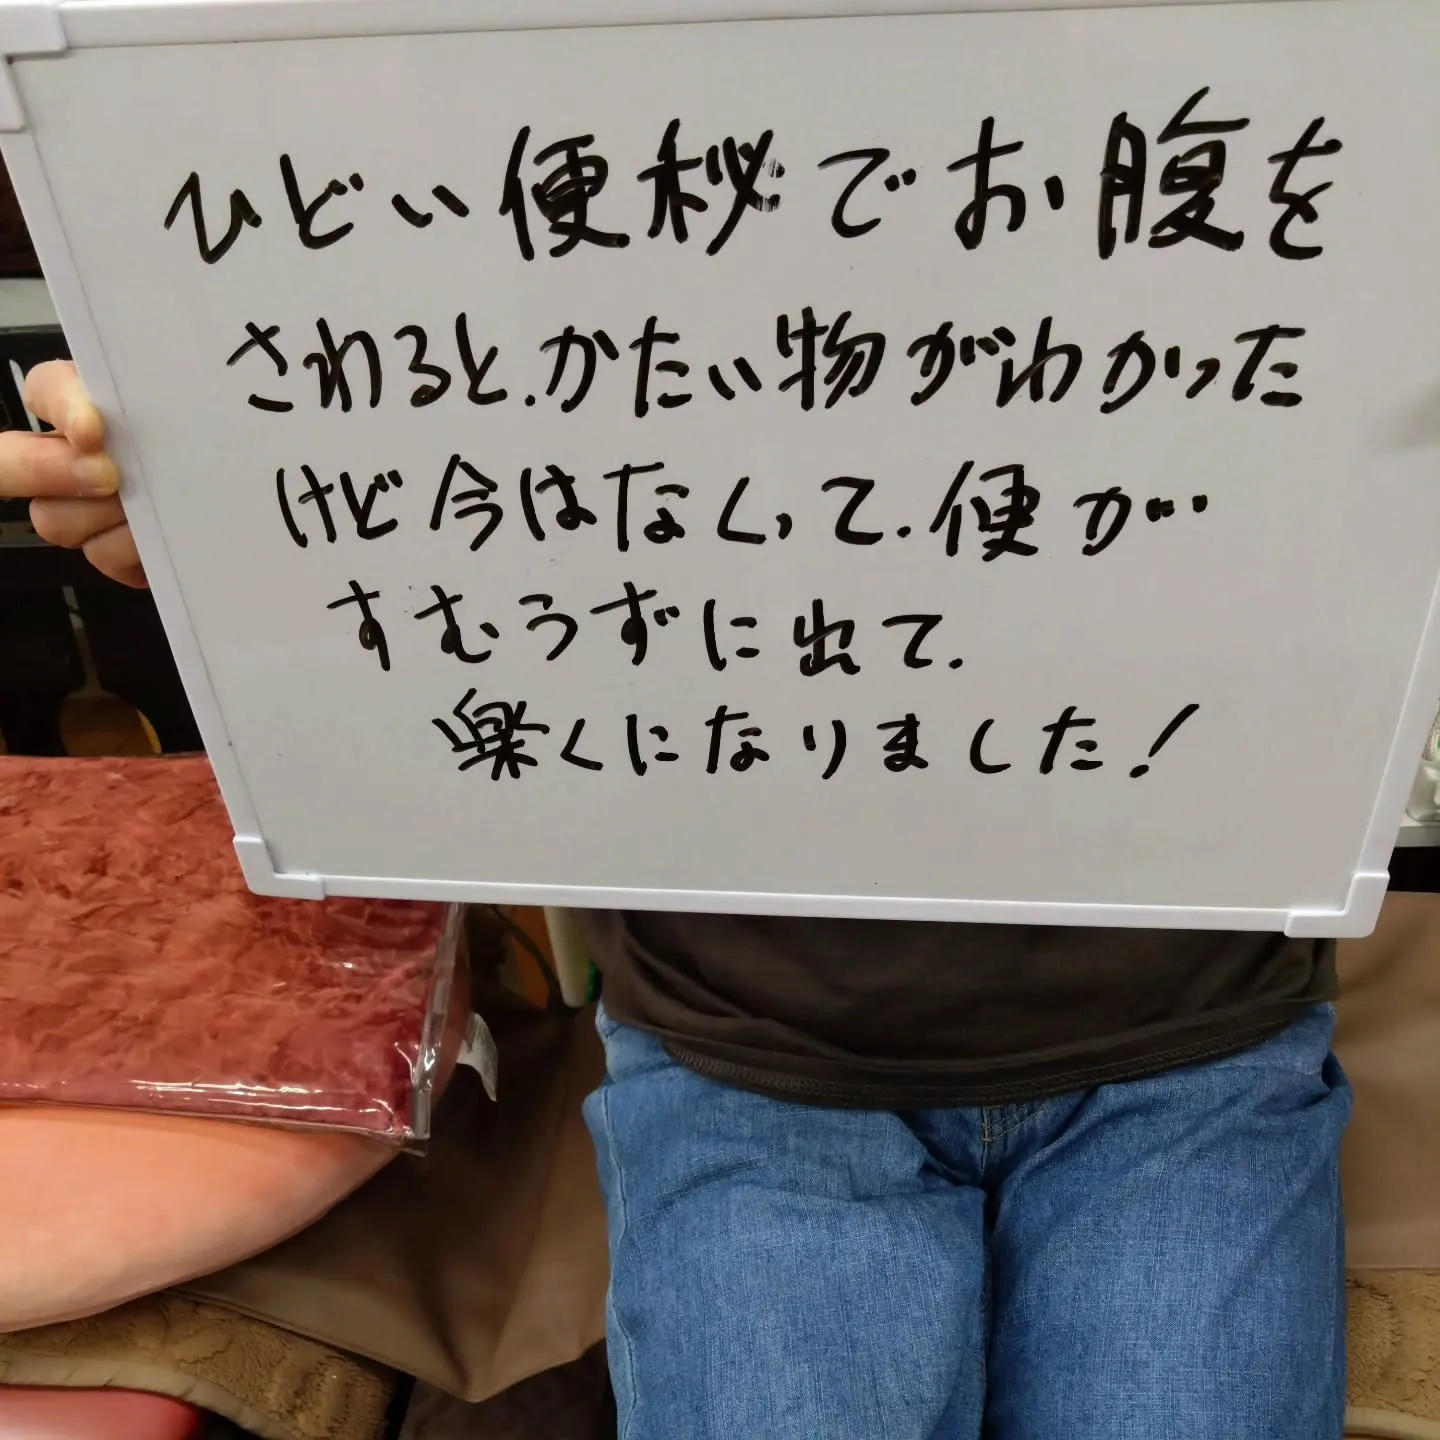 ひどい便秘でお腹を
されると、かたい物がわかった
けど今はなくって、便が…
すむうずに出て、
楽くになりました！